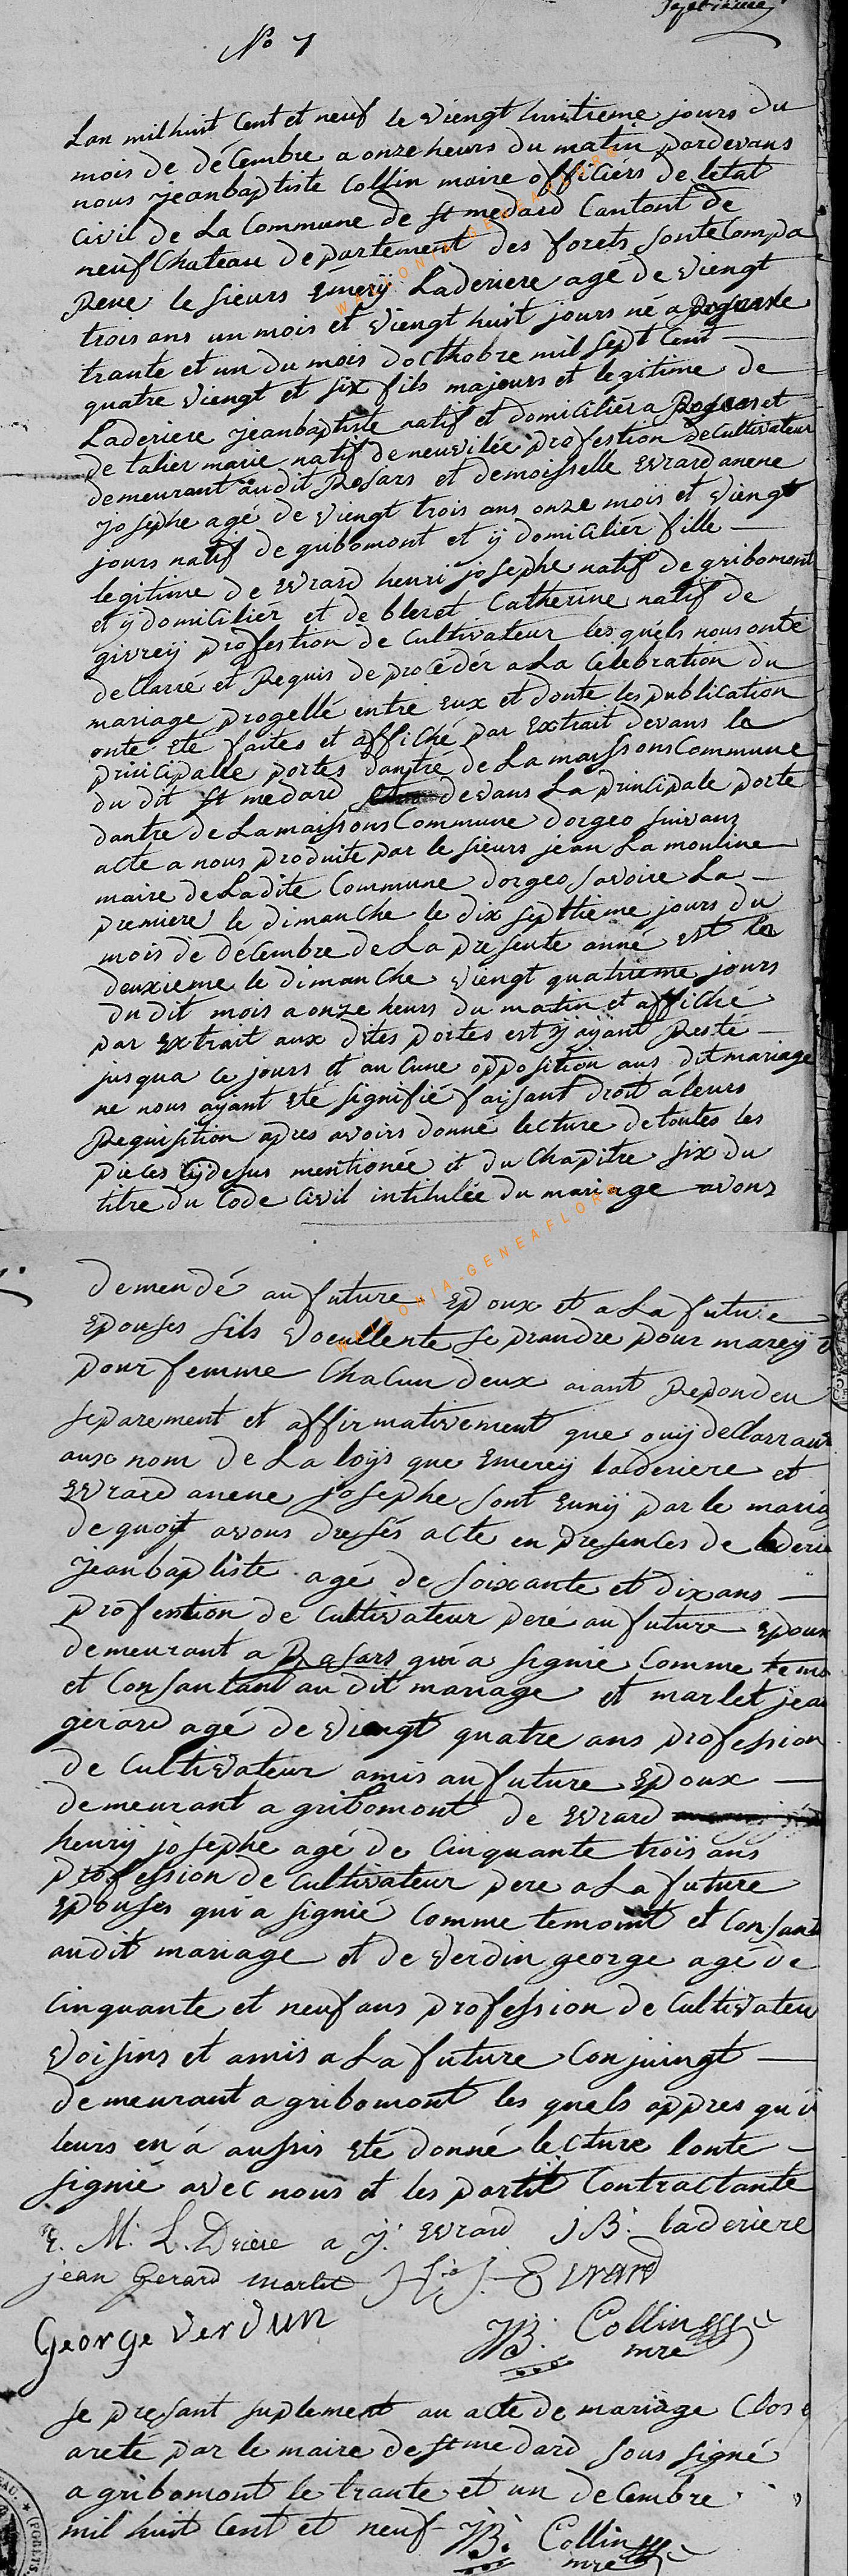 No 7
Lan mil huit Cent et neuf le viengt huitieme jours du
mois de décembre a onze heurs du matin pardevans
nous jeanbaptiste Collin maire officiérs de letat
Civil de La Commune de st medard Cantont de
neufchateau departement des forets sonte Compa
Reue le sieurs Emerÿ Laderiere agé de viengt
trois ans un mois et viengt huit jours né a
trante et un du mois docthobre mil sept Cent
quatre viengt et six fils majeurs et legitime de
Laderiere jeanbaptiste natif et domiciliér a Rosars et
de talier marie natif de neuvilée profestion de Cultivateur
demeurant audit Rosars et demoisselle Evrard anene
josephe agé de viengt trois ans onze moiis et viengt
jours natif de gribomont et ÿ domicilier fille
legitime de Evrard henri josephe natif de gribomont
et ÿ domiciliér et de bleret Catherine natif de
givreÿ profestion de Cultivateur les quels nous onte
declarré et Requis de procédér a La Célebration du
mariage progellé entre eux et donte les publication
onte eté faites et affiché par Extrait devans la
principalle portes dantré de La maissons Commune
du dit st medard devans La principale porte
dantre de La maissons Commune dorgeo suivans
acte a nous produite par le sieurs jean La mouline
maire de Ladite Commune dorgeo savoire La
premiere le dimanche le dix septhieme jours du
mois de décembre de La presente anné est la
deuxieme le dimanche viengt quatrieme jours
du dit mois a onze heurs du matin et affiché
par Extrait aux dites portes est ÿ aÿant Resté
jusqua ce jours et au cune opposition aus dit mariage
ne nous aÿant eté signifié faisant droit á leurs
Requisition apres avoirs donné lecture de toutes les
pieces Cÿdesus mentionée et du Chapitre six du
titre du Code Civil intitulée du mariage avons
demendé au future Epoux et a La future
Epouses sils voeullente se prandre pour mareÿ
pour femme Chacun deux aiant Repondeu
separement et affirmativement que ouÿ declarrant
aux nom de La loÿs que Emereÿ laderiere et
Evrard anene josephe sont eunÿ par le mariag
de quoÿ avous dresés acte en presences de laderie
jeanbaptiste agé de soixante et dix ans
profesttion de Cultivateur peré au future Epoux
demeurant a Rosars qui a signié Comme temo
et Consantant au dit mariage et marlet jean
gerard agé de viengt quatre ans profession
de Cultivateur amis au future Epoux
demeurant a gribomont de Evrard
henrÿ josephe agé de Cinquante trois ans
profession de Cultivateur pere a La future
Epouses qui a signié Comme temoint et Consant
audit mariage et de verdin george agé de
Cinquante et neuf ans profession de Cultivateu
voisins et amis a La future Conjuingt
demeurant a gribomont les quels appres qu'i
leurs en á aussis eté donné lecture lonte
signié avec nous et les partit Contractante
E. M. L. Driere a j. Evrard J B. laderiere
jean Gerard marlet H. J. Evrard
George Verdun
JB. Collin
mre
Le presant suplement au acte de mariage Clos e
areté par le maire de st medard sous signé
a gribomont le trante et un decembre
mil huit Cent et neuf JB. Collin
mre
WALLONIA-GENEAFLORE